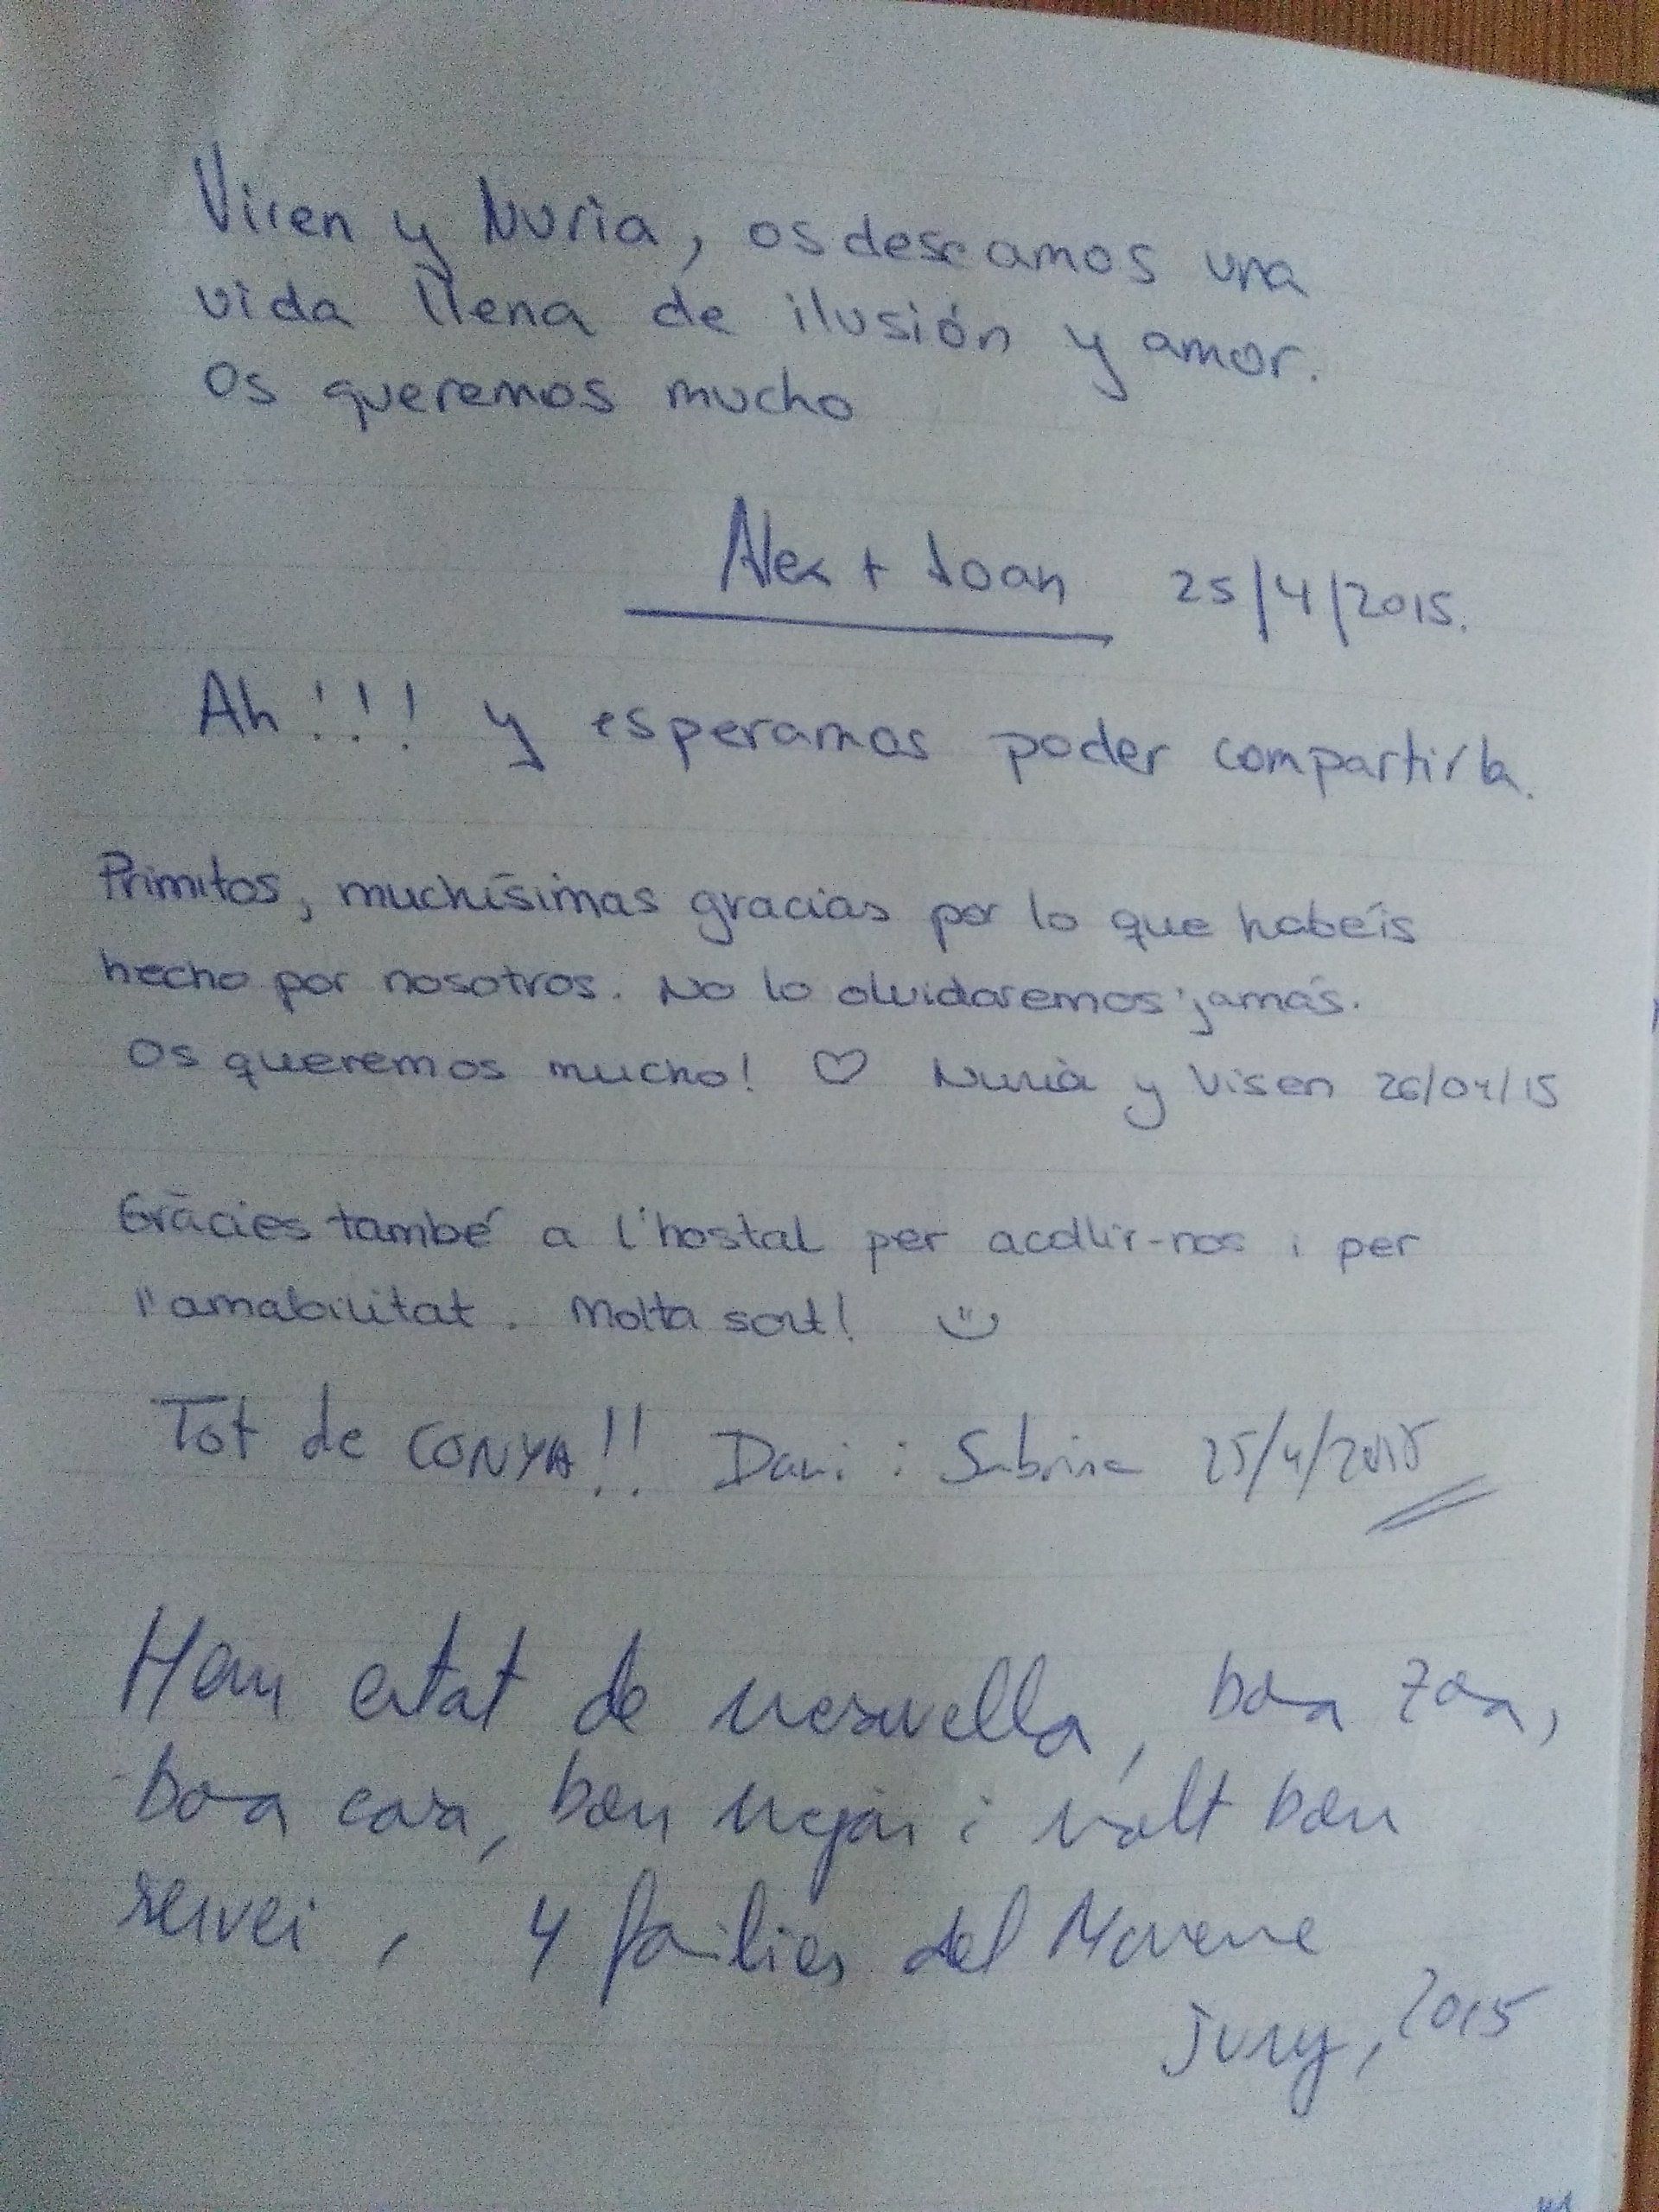 Visen y Nuria, os deseamos una
vida llena de ilusión y amor.
Os queremos mucho
Alex + Joan 25/4/2015.
Ah!!! y esperamos poder compartirla.
Primitos, muchísimas gracias por lo que habéis
hecho por nosotros. No lo olvidaremos jamás.
Os queremos mucho! ♡ Nuria y Visen 26/04/15
Gràcies també a l'hostal per acollir-nos i per
l'amabilitat. Molta sort!
Tot de CONYA!! Dani i Sabrina 25/4/2015
Hem estat de meravella, bona zona,
bona casa, bon menjar i molt bon
servei, 4 famílies del
juny, 2015